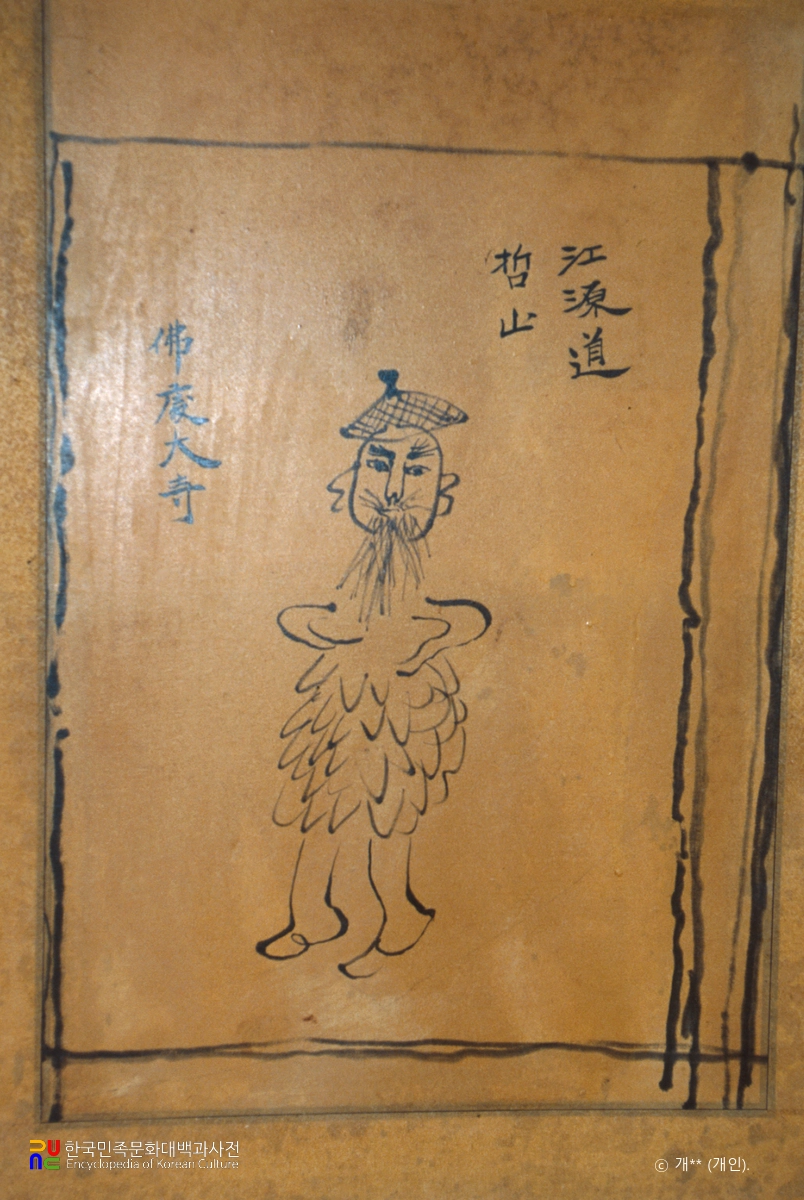 江源道
哲山
佛慶大寺
한국민족문화대백과사전
Encyclopedia of Korean Culture
ⓒ 개** (개인).